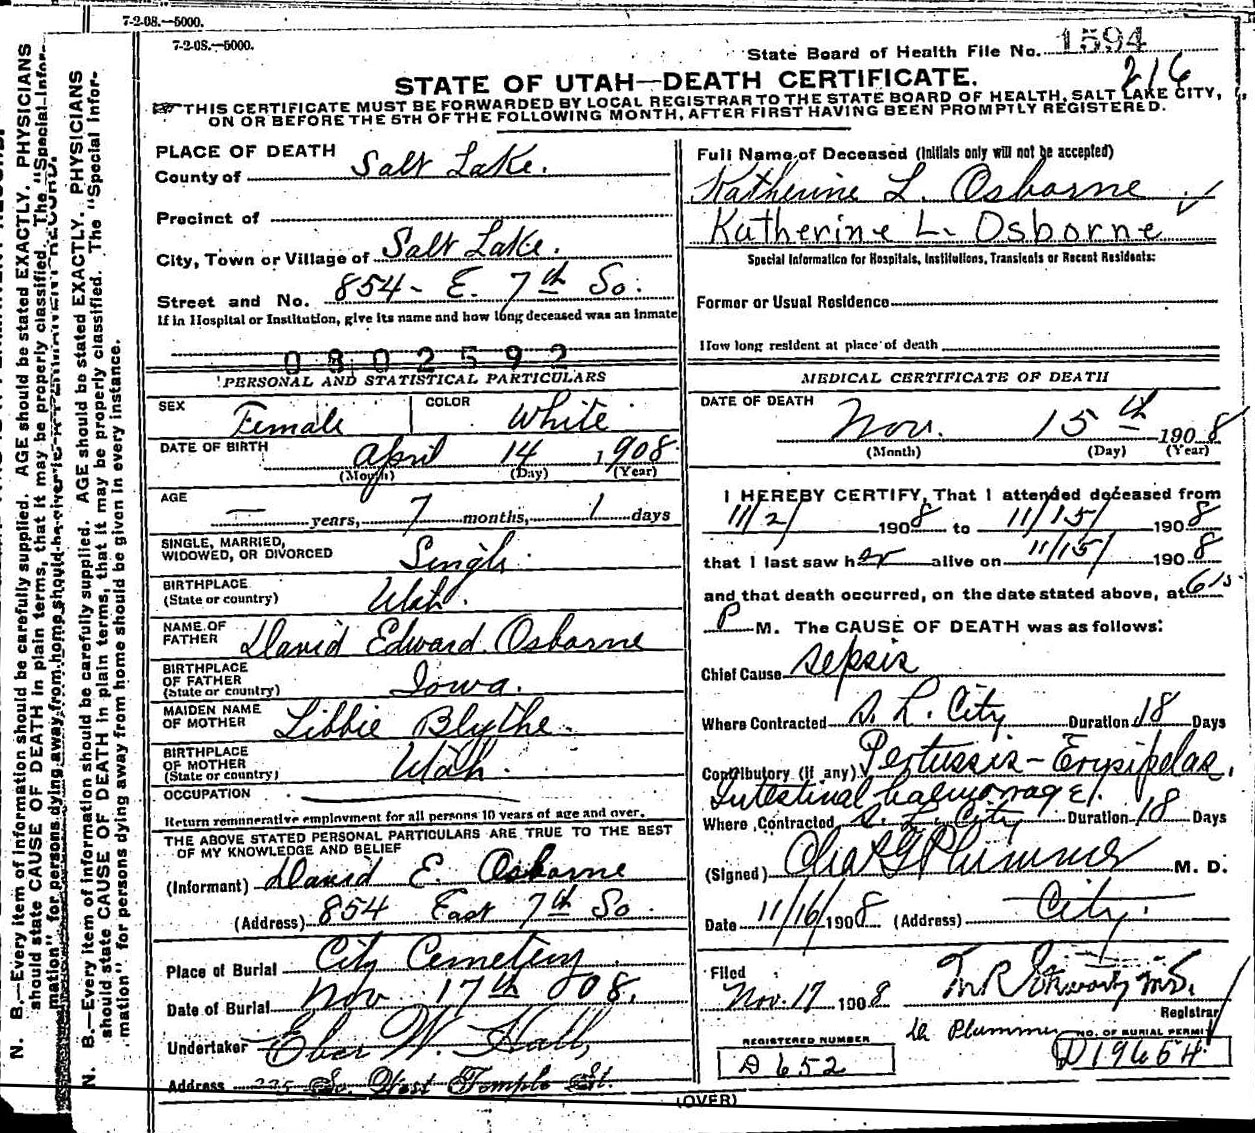 7-2-08.—5000.
7-2-08.—5000.
State Board of Health File No. 1594
216
STATE OF UTAH—DEATH CERTIFICATE.
THIS CERTIFICATE MUST BE FORWARDED BY LOCAL REGISTRAR TO THE STATE BOARD OF HEALTH, SALT LAKE CITY,
ON OR BEFORE THE 5TH OF THE FOLLOWING MONTH, AFTER FIRST HAVING BEEN PROMPTLY REGISTERED.
PLACE OF DEATH
County of Salt Lake.
Precinct of
City, Town or Village of Salt Lake.
Street and No. 854- E. 7th So.
If in Hospital or Institution, give its name and how long deceased was an inmate
0802592
PERSONAL AND STATISTICAL PARTICULARS
SEX Female COLOR White
DATE OF BIRTH April 14 1908
(Month) (Day) (Year)
AGE — years, 7 months, 1 days
SINGLE, MARRIED,
WIDOWED, OR DIVORCED Single
BIRTHPLACE
(State or country) Utah.
NAME OF
FATHER David Edward Osborne
BIRTHPLACE
OF FATHER
(State or country) Iowa.
MAIDEN NAME
OF MOTHER Libbie Blythe.
BIRTHPLACE
OF MOTHER
(State or country) Utah.
OCCUPATION
Return remunerative employment for all persons 10 years of age and over.
THE ABOVE STATED PERSONAL PARTICULARS ARE TRUE TO THE BEST
OF MY KNOWLEDGE AND BELIEF
(Informant) David E. Osborne
(Address) 854 East 7th So.
Place of Burial City Cemetery
Date of Burial Nov 17th 908.
Undertaker Eber W. Hall,
Address So. West Temple St.
Full Name of Deceased (Initials only will not be accepted)
Katherine L. Osborne
Katherine L. Osborne
Special Information for Hospitals, Institutions, Transients or Recent Residents:
Former or Usual Residence
How long resident at place of death
MEDICAL CERTIFICATE OF DEATH
DATE OF DEATH
Nov. 15th 1908
(Month) (Day) (Year)
I HEREBY CERTIFY, That I attended deceased from
11/2/ 1908 to 11/15/ 1908
that I last saw her alive on 11/15/ 1908
and that death occurred, on the date stated above, at 615
P M. The CAUSE OF DEATH was as follows:
Chief Cause sepsis
Where Contracted S. L. City Duration 18 Days
Contributory (if any) Pertussis - Erysipelas,
Intestinal haemorrage.
Where Contracted S. L. City Duration 18 Days
(Signed) Chas G Plummer M. D.
Date 11/16/1908 (Address) City.
Filed
Nov. 17 1908
Registrar
Dr Plummer
REGISTERED NUMBER
D 652
NO. OF BURIAL PERMIT
D19654
(OVER)
N. B.—Every item of information should be carefully supplied. AGE should be stated EXACTLY. PHYSICIANS
should state CAUSE OF DEATH in plain terms, that it may be properly classified. The "Special Infor-
mation" for persons dying away from home should be given in every instance.
N. B.—Every item of information should be carefully supplied. AGE should be stated EXACTLY. PHYSICIANS
should state CAUSE OF DEATH in plain terms, that it may be properly classified. The "Special Infor-
mation" for persons dying away from home should be given in every instance.